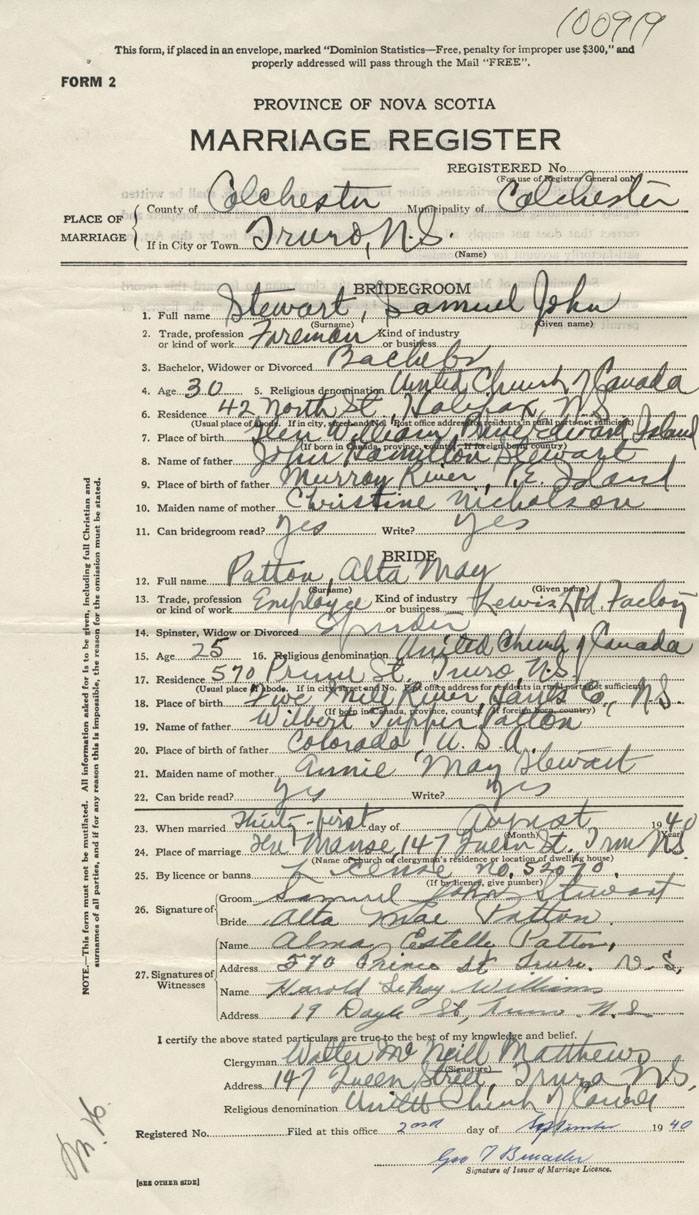 100919
This form, if placed in an envelope, marked "Dominion Statistics—Free, penalty for improper use $300," and
properly addressed will pass through the Mail "FREE".
FORM 2
PROVINCE OF NOVA SCOTIA
MARRIAGE REGISTER
REGISTERED No.
(For use of Registrar General only)
PLACE OF MARRIAGE
County of Colchester Municipality of Colchester
If in City or Town Truro, N.S.
(Name)
BRIDEGROOM
1. Full name Stewart, Samuel John
(Surname) (Given name)
2. Trade, profession or kind of work Foreman Kind of industry or business
3. Bachelor, Widower or Divorced Bachelor
4. Age 30 5. Religious denomination United Church of Canada
6. Residence 42 North St. Halifax, N.S.
(Usual place of abode. If in city, street and No. Post office address for residents in rural parts not sufficient)
7. Place of birth Glen William, Prince Edward Island
(If born in Canada, province, county. If foreign born, country)
8. Name of father John Hamilton Stewart
9. Place of birth of father Murray River, P.E. Island
10. Maiden name of mother Christine Nicholson
11. Can bridegroom read? Yes Write? Yes
BRIDE
12. Full name Patton, Alta May
(Surname) (Given name)
13. Trade, profession or kind of work Employee Kind of industry or business Lewis Ltd. Factory
14. Spinster, Widow or Divorced Spinster
15. Age 25 16. Religious denomination United Church of Canada
17. Residence 570 Prince St. Truro, N.S.
(Usual place of abode. If in city street and No. Post office address for residents in rural parts not sufficient)
18. Place of birth Five Mile River, Hants Co., N.S.
(If born in Canada, province, county. If foreign born, country)
19. Name of father Wilbert Tupper Patton
20. Place of birth of father Colorado U.S.A.
21. Maiden name of mother Annie May Stewart
22. Can bride read? Yes Write? Yes
23. When married Thirty-first day of August 1940
(Month) (Year)
24. Place of marriage The Manse, 147 Queen St. Truro N.S.
(Name of church or clergyman's residence or location of dwelling house)
25. By licence or banns License no. 52070.
(If by licence, give number)
26. Signature of
Groom Samuel John Stewart
Bride Alta Mae Patton.
27. Signatures of Witnesses
Name Alma Estelle Patton,
Address 570 Prince St Truro. N.S.
Name Harold LeRoy Williams
Address 19 St, Truro N.S.
I certify the above stated particulars are true to the best of my knowledge and belief.
Clergyman Walter McNeill Matthews
(Signature)
Address 147 Queen Street, Truro N.S.
Religious denomination United Church of Canada
Registered No. Filed at this office 2nd day of September 1940
Geo T
Signature of Issuer of Marriage Licence.
[SEE OTHER SIDE]
NOTE.—This form must not be mutilated. All information asked for is to be given, including full Christian and
surnames of all parties, and if for any reason this is impossible, the reason for the omission must be stated.